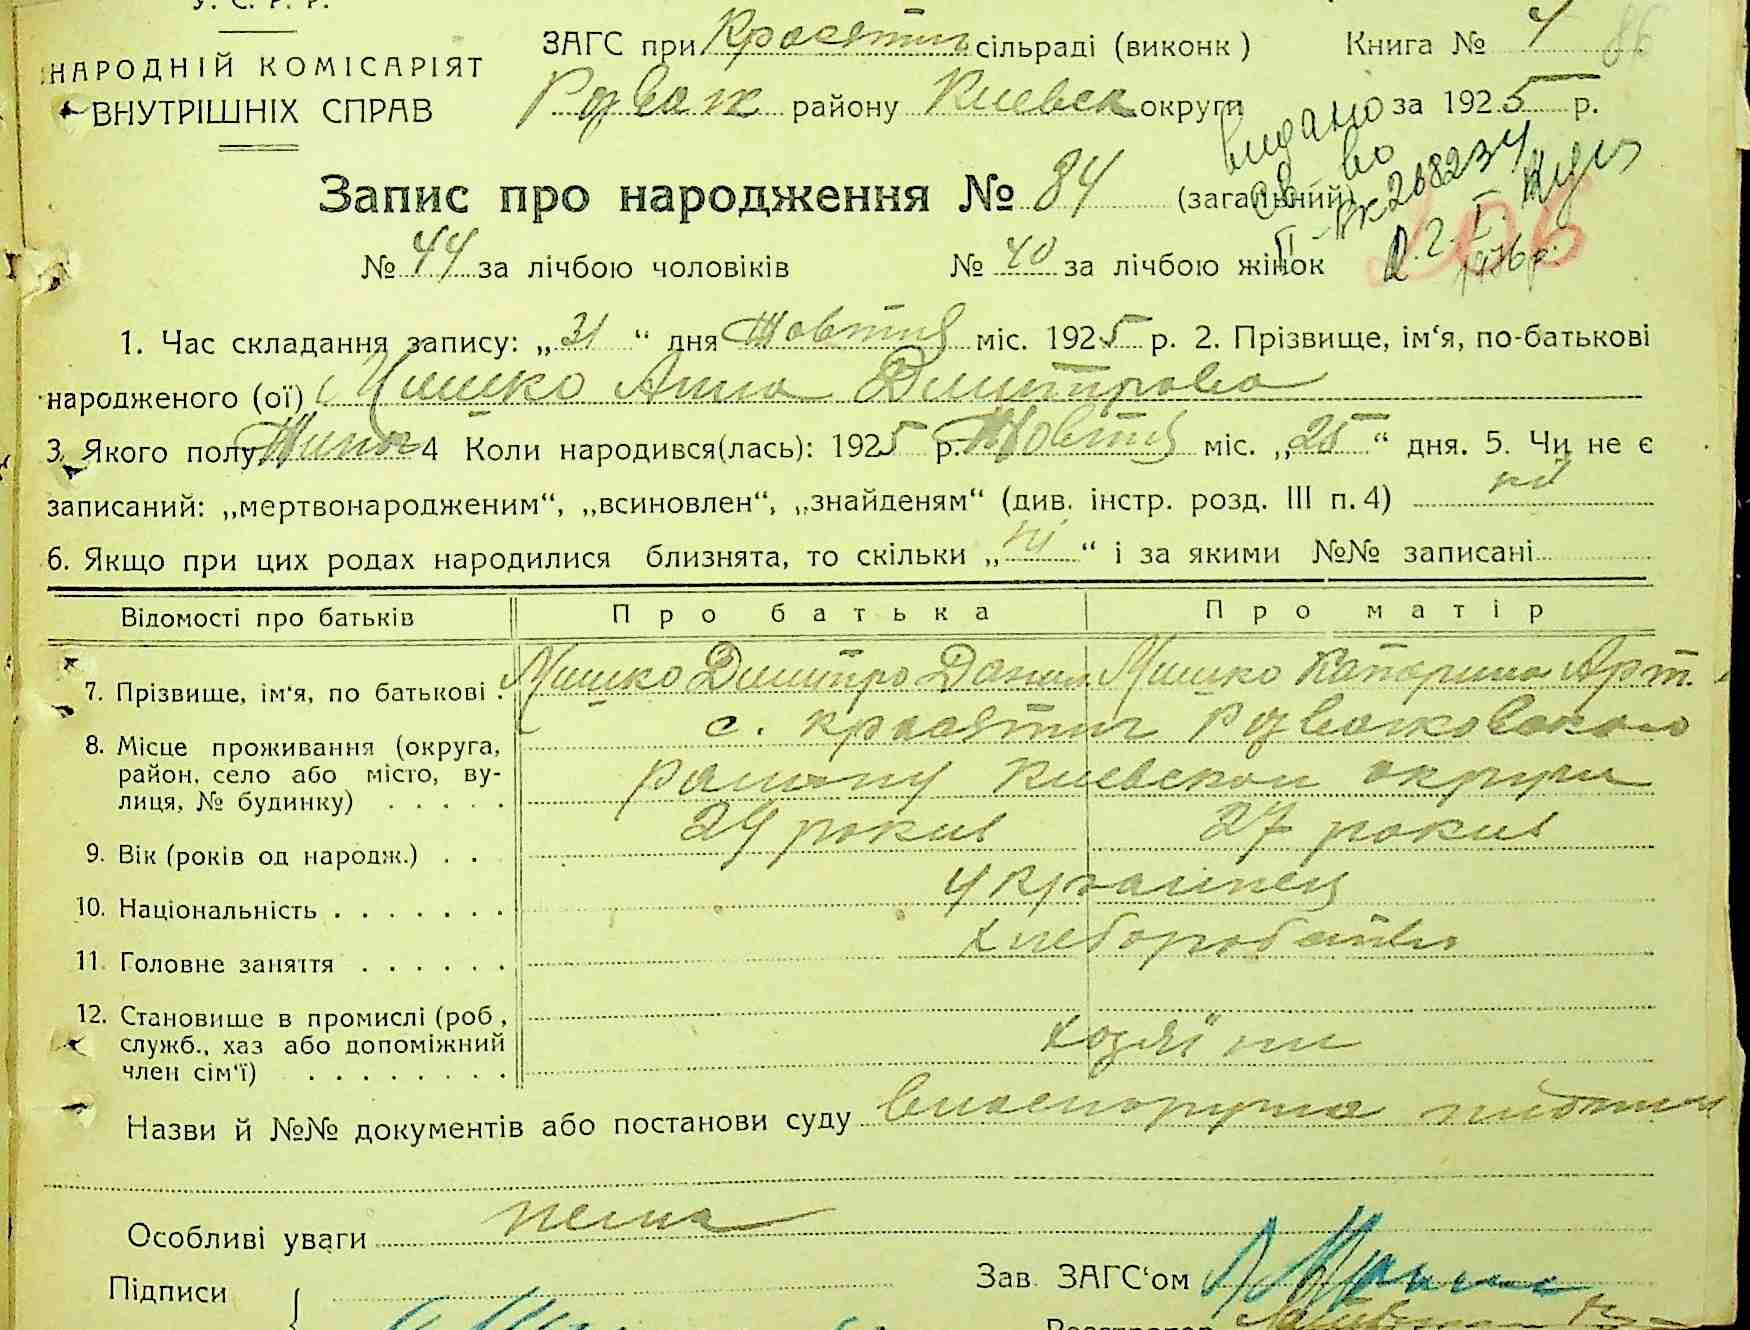 У. С. Р. Р.
НАРОДНІЙ КОМІСАРІЯТ
ВНУТРІШНІХ СПРАВ
ЗАГС при Красятич сільраді (виконк) Книга № 4 86
Розваж району Киевск округи за 1925 р.
видано
св-во
II-
№ 268234
206
Запис про народження № 84 (загальний)
№ 44 за лічбою чоловіків № 40 за лічбою жінок
1. Час складання запису: „31“ дня Жовтня міс. 1925 р. 2. Прізвище, ім‘я, по-батькові
народженого (ої) Мишко Анна Дмитрова
3. Якого полу Жиноч 4 Коли народився(лась): 1925 р. Жовтня міс. „25“ дня. 5. Чи не є
записаний: „мертвонародженим“, „всиновлен“, „знайденям“ (див. інстр. розд. III п. 4) ні
6. Якщо при цих родах народилися близнята, то скільки „ні“ і за якими №№ записані
Відомості про батьків Про батька Про матір
7. Прізвище, ім‘я, по батькові Мишко Дмитро Данил Мишко Катерина Арт.
8. Місце проживання (округа, район, село або місто, вулиця, № будинку) с. Красятич Розважковского
району Киевской округи
9. Вік (років од народж.) 24 роки 27 роки
10. Національність украинец
11. Головне заняття хлеборобство
12. Становище в промислі (роб, служб., хаз або допоміжний член сім‘ї) хозяїни
Назви й №№ документів або постанови суду
Особливі уваги нема
Підписи
Зав. ЗАГС‘ом
Реєстратор